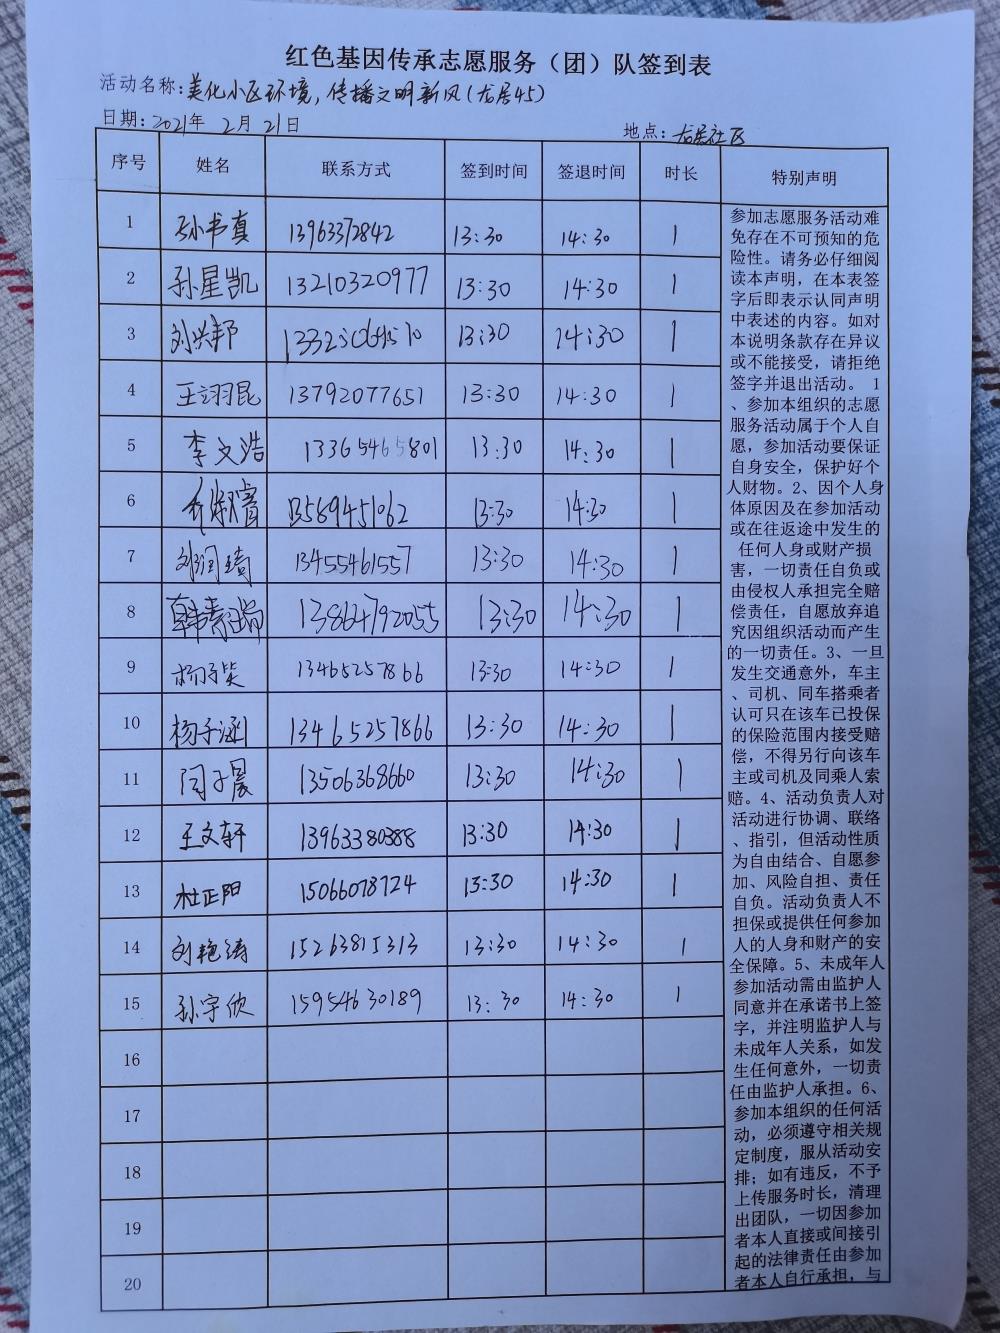 红色基因传承志愿服务（团）队签到表
活动名称：美化小区环境，传播文明新风（龙居45）
日期：2021年 2月 21日
地点：龙居社区
序号 姓名 联系方式 签到时间 签退时间 时长 特别声明
1 孙书真 13963372842 13:30 14:30 1
2 孙星凯 13210320977 13:30 14:30 1
3 刘兴邦 13:30 14:30 1
4 王翊昆 13792077651 13:30 14:30 1
5 李文浩 13365465801 13:30 14:30 1
6 13589451062 13:30 14:30 1
7 刘润琦 13455461557 13:30 14:30 1
8 13864792055 13:30 14:30 1
9 13465257866 13:30 14:30 1
10 杨子涵 13465257866 13:30 14:30 1
11 闫子晨 13506368660 13:30 14:30 1
12 王文轩 13963380388 13:30 14:30 1
13 杜正阳 15066078724 13:30 14:30 1
14 刘艳涛 15263815313 13:30 14:30 1
15 孙宇欣 15954630189 13:30 14:30 1
16
17
18
19
20
参加志愿服务活动难
免存在不可预知的危
险性。请务必仔细阅
读本声明，在本表签
字后即表示认同声明
中表述的内容。如对
本说明条款存在异议
或不能接受，请拒绝
签字并退出活动。 1
、参加本组织的志愿
服务活动属于个人自
愿，参加活动要保证
自身安全，保护好个
人财物。2、因个人身
体原因及在参加活动
或在往返途中发生的
任何人身或财产损
害，一切责任自负或
由侵权人承担完全赔
偿责任，自愿放弃追
究因组织活动而产生
的一切责任。3、一旦
发生交通意外，车主
、司机、同车搭乘者
认可只在该车已投保
的保险范围内接受赔
偿，不得另行向该车
主或司机及同乘人索
赔。4、活动负责人对
活动进行协调、联络
、指引，但活动性质
为自由结合、自愿参
加、风险自担、责任
自负。活动负责人不
担保或提供任何参加
人的人身和财产的安
全保障。5、未成年人
参加活动需由监护人
同意并在承诺书上签
字，并注明监护人与
未成年人关系，如发
生任何意外，一切责
任由监护人承担。6、
参加本组织的任何活
动，必须遵守相关规
定制度，服从活动安
排；如有违反，不予
上传服务时长，清理
出团队，一切因参加
者本人直接或间接引
起的法律责任由参加
者本人自行承担，与